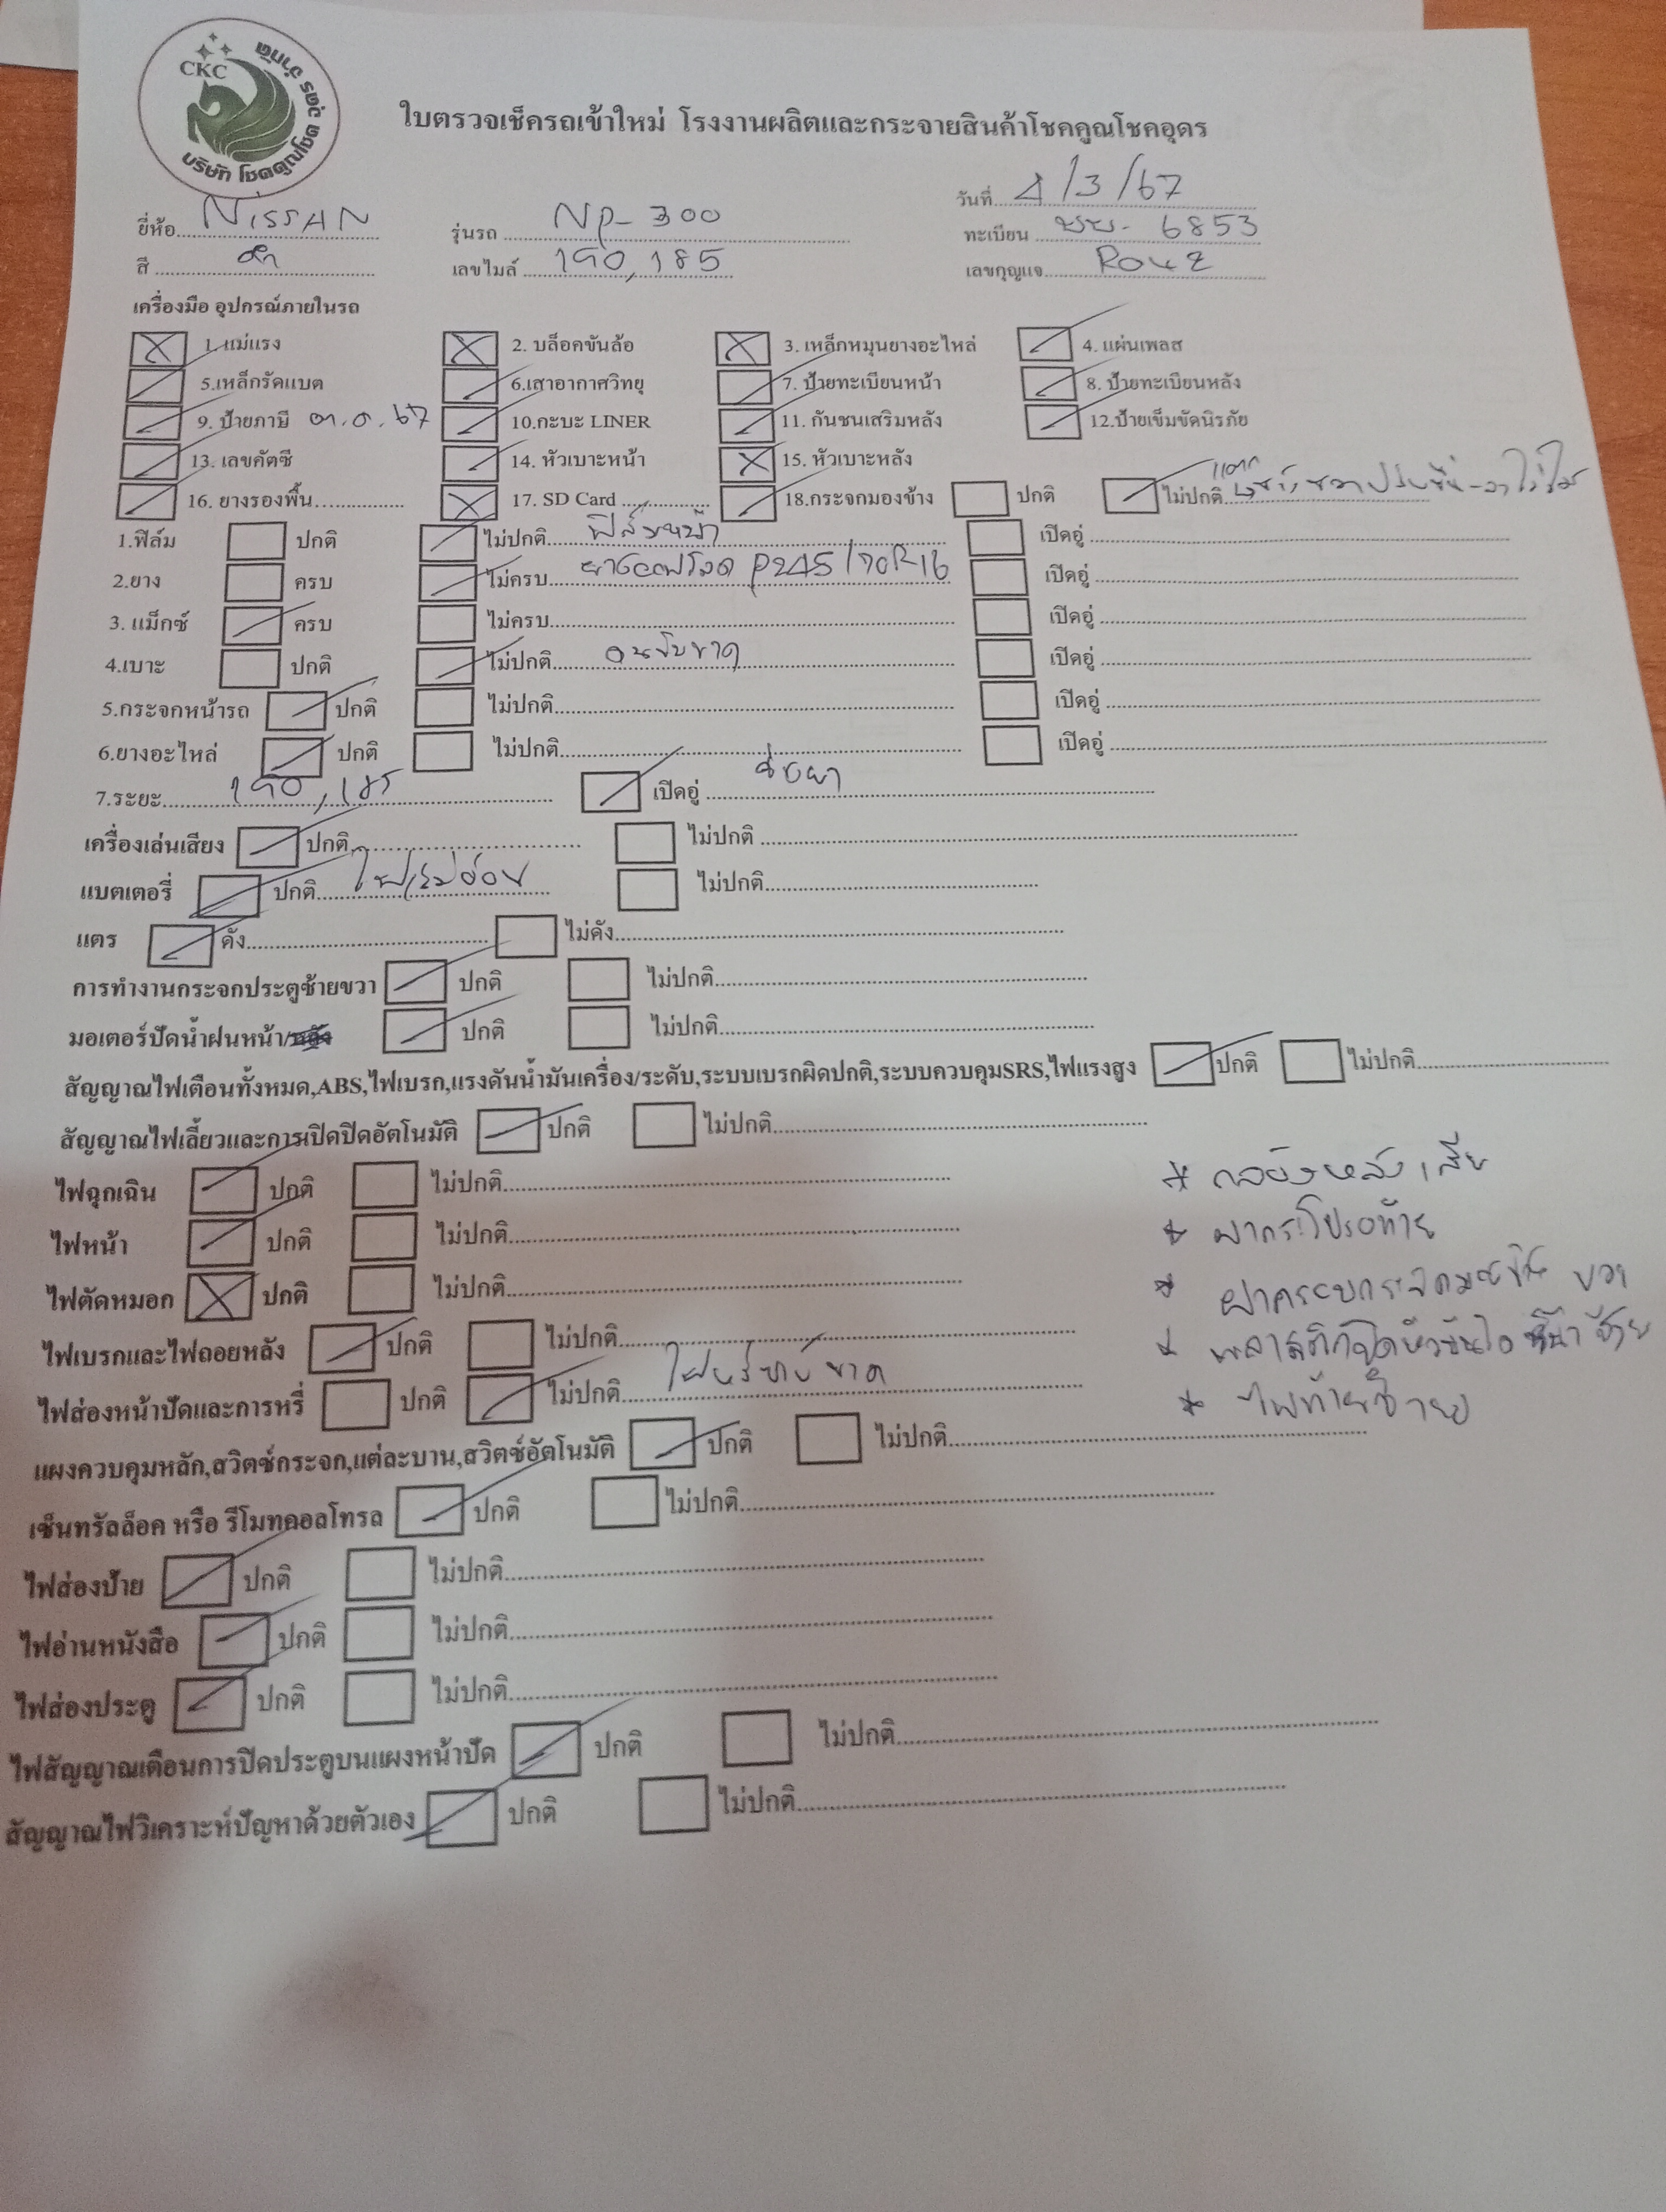 CKC
บริษัท โชคคูณโชค อุดร จำกัด
ใบตรวจเช็ครถเข้าใหม่ โรงงานผลิตและกระจายสินค้าโชคคูณโชคอุดร
วันที่ 4/3/67
ยี่ห้อ NiSSAN รุ่นรถ NP-300 ทะเบียน 6853
สี ดำ เลขไมล์ 190,185 เลขกุญแจ
เครื่องมือ อุปกรณ์ภายในรถ
1. แม่แรง 2. บล็อคขันล้อ 3. เหล็กหมุนยางอะไหล่ 4. แผ่นเพลส
5.เหล็กรัดแบต 6.เสาอากาศวิทยุ 7. ป้ายทะเบียนหน้า 8. ป้ายทะเบียนหลัง
9. ป้ายภาษี 67 10.กะบะ LINER 11. กันชนเสริมหลัง 12.ป้ายเข็มขัดนิรภัย
13. เลขคัตซี 14. หัวเบาะหน้า 15. หัวเบาะหลัง
16. ยางรองพื้น 17. SD Card 18.กระจกมองข้าง ปกติ ไม่ปกติ แตก
1.ฟิล์ม ปกติ ไม่ปกติ ฟิล์มหน้า เปิดอู่
2.ยาง ครบ ไม่ครบ ยางออฟโรด P245/70R-16 เปิดอู่
3. แม็กซ์ ครบ ไม่ครบ เปิดอู่
4.เบาะ ปกติ ไม่ปกติ คนขับขาด เปิดอู่
5.กระจกหน้ารถ ปกติ ไม่ปกติ เปิดอู่
6.ยางอะไหล่ ปกติ ไม่ปกติ เปิดอู่
7.ระยะ 190,185 เปิดอู่
เครื่องเล่นเสียง ปกติ ไม่ปกติ
แบตเตอรี่ ปกติ ไฟเริ่มอ่อน ไม่ปกติ
แตร ดัง ไม่ดัง
การทำงานกระจกประตูซ้ายขวา ปกติ ไม่ปกติ
มอเตอร์ปัดน้ำฝนหน้า/หลัง ปกติ ไม่ปกติ
สัญญาณไฟเตือนทั้งหมด,ABS,ไฟเบรก,แรงดันน้ำมันเครื่อง/ระดับ,ระบบเบรกผิดปกติ,ระบบควบคุมSRS,ไฟแรงสูง ปกติ ไม่ปกติ
สัญญาณไฟเลี้ยวและการเปิดปิดอัตโนมัติ ปกติ ไม่ปกติ
ไฟฉุกเฉิน ปกติ ไม่ปกติ
* กล้องหลังเสีย
ไฟหน้า ปกติ ไม่ปกติ
* ฝากระโปรงท้าย
ไฟตัดหมอก ปกติ ไม่ปกติ
* ฝาครอบกระจกมองข้าง ขวา
ไฟเบรกและไฟถอยหลัง ปกติ ไม่ปกติ
* พลาสติกปิดหัวบันได หน้า ซ้าย
ไฟส่องหน้าปัดและการหรี่ ปกติ ไม่ปกติ ไฟหรี่ ขาด
* ไฟท้ายซ้าย
แผงควบคุมหลัก,สวิตซ์กระจก,แต่ละบาน,สวิตซ์อัตโนมัติ ปกติ ไม่ปกติ
เซ็นทรัลล็อค หรือ รีโมทคอลโทรล ปกติ ไม่ปกติ
ไฟส่องป้าย ปกติ ไม่ปกติ
ไฟอ่านหนังสือ ปกติ ไม่ปกติ
ไฟส่องประตู ปกติ ไม่ปกติ
ไฟสัญญาณเตือนการปิดประตูบนแผงหน้าปัด ปกติ ไม่ปกติ
สัญญาณไฟวิเคราะห์ปัญหาด้วยตัวเอง ปกติ ไม่ปกติ